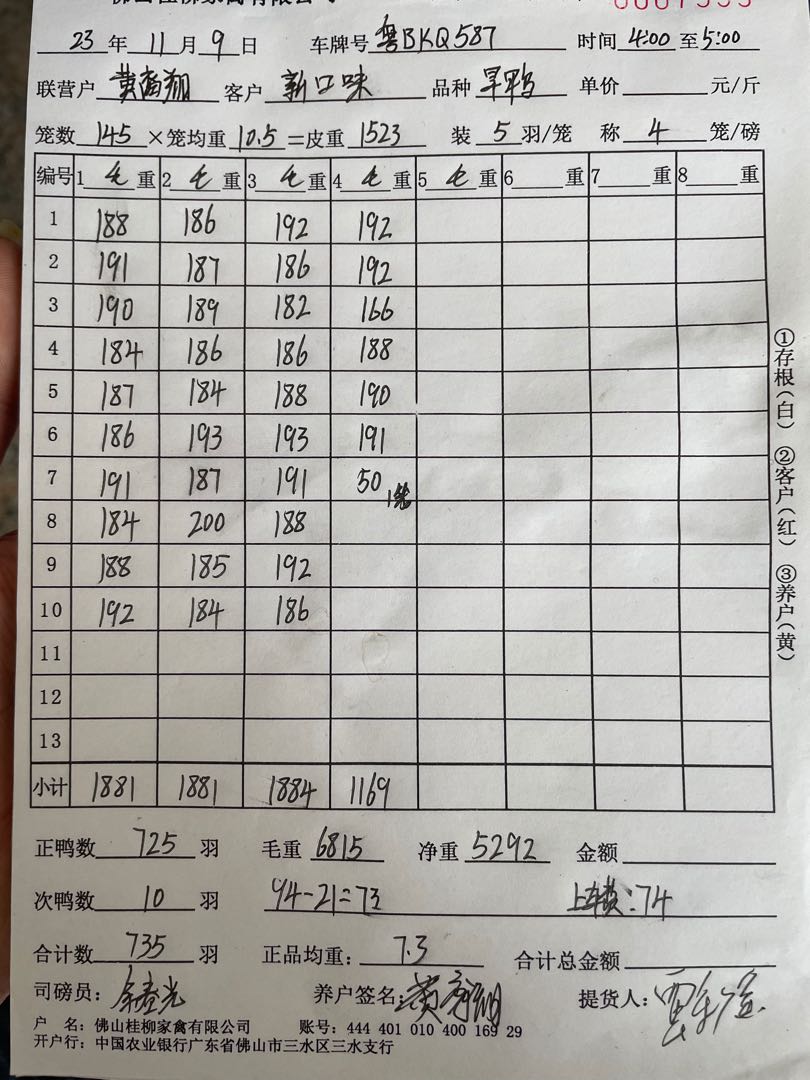 佛山桂柳家禽有限公司
23 年 11 月 9 日 车牌号 粤BKQ587 时间 4:00 至 5:00
联营户 客户 新口味 品种 旱鸭 单价 元/斤
笼数 145 ×笼均重 10.5 =皮重 1523 装 5 羽/笼 称 4 笼/磅
编号 1 毛 重 2 毛 重 3 毛 重 4 毛 重 5 毛 重 6 重 7 重 8 重
1 188 186 192 192
2 191 187 186 192
3 190 189 182 166
4 184 186 186 188
5 187 184 188 190
6 186 193 193 191
7 191 187 191 50 1笼
8 184 200 188
9 188 185 192
10 192 184 186
11
12
13
小计 1881 1881 1884 1169
正鸭数 725 羽 毛重 6815 净重 5292 金额
次鸭数 10 羽 94-21=73 上车数:74
合计数 735 羽 正品均重: 7.3 合计总金额
司磅员: 养户签名: 提货人:
户 名: 佛山桂柳家禽有限公司 账号: 444 401 010 400 169 29
开户行: 中国农业银行广东省佛山市三水区三水支行
①存根(白) ②客户(红) ③养户(黄)